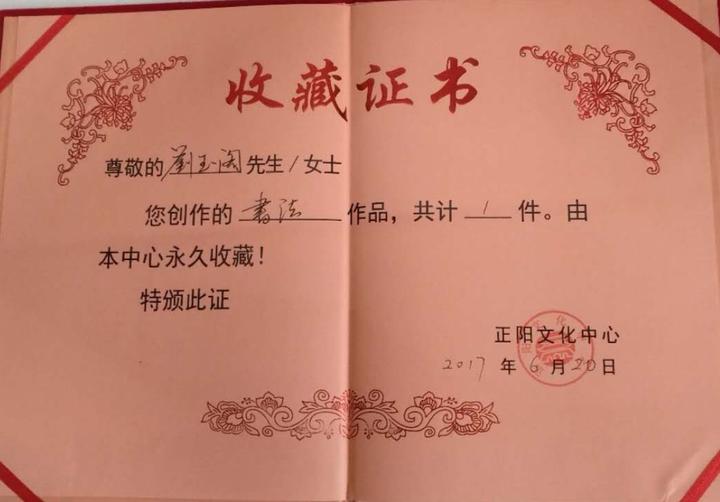 收藏证书
尊敬的劉玉阁先生/女士
您创作的 書法 作品，共计 1 件。由
本中心永久收藏！
特颁此证
正阳文化中心
2017年6月20日